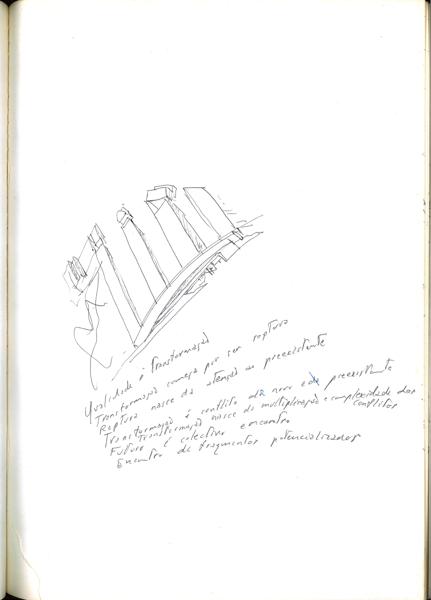 Qualidade é transformação
Transformação começa por ser ruptura
Ruptura nasce da atenção ao preexistente
Transformação é conflito do novo e do preexistente
Transformação nasce da multiplicação e complexidade dos conflitos
Futuro é colectivo encontro
Encontro de fragmentos potencializados